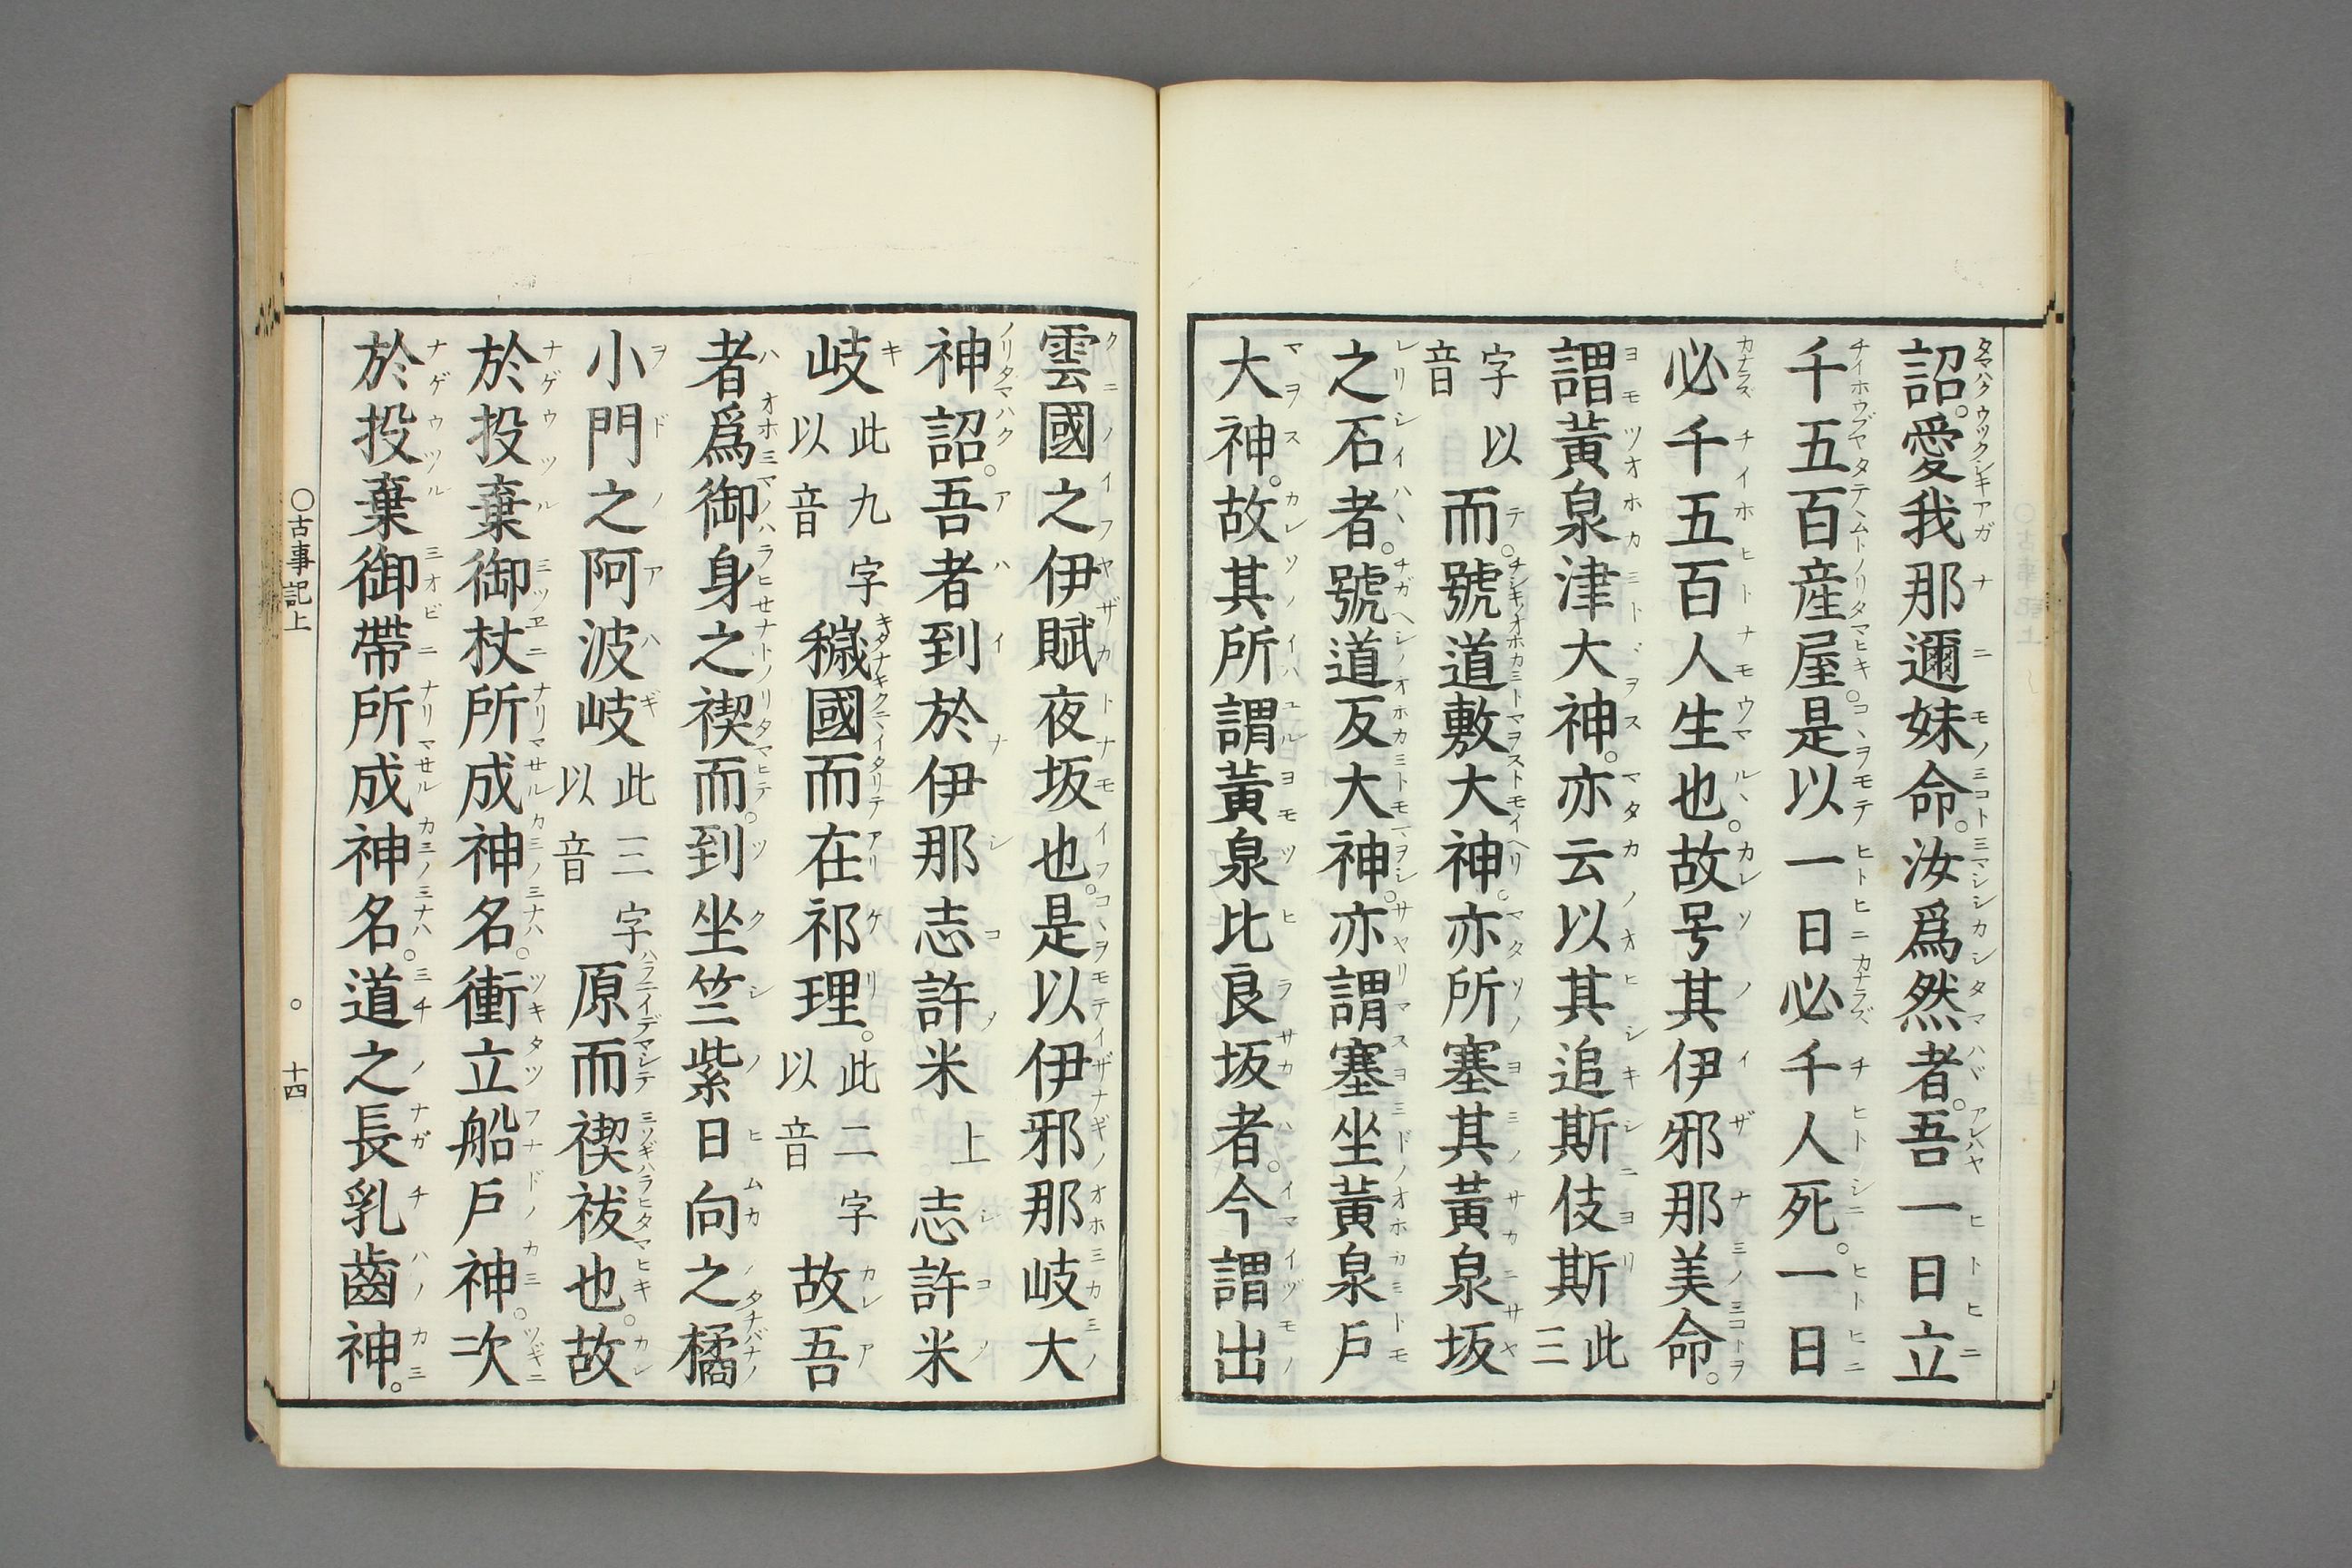 詔。愛我那邇妹命。汝爲然者。吾一日立
千五百産屋。是以一日必千人死。一日
必千五百人生也。故号其伊邪那美命。
謂黃泉津大神。亦云以其追斯伎斯此三
字以音而。號道敷大神。亦所塞其黃泉坂
之石者。號道反大神。亦謂塞坐黃泉戶
大神。故其所謂黃泉比良坂者。今謂出
雲國之伊賦夜坂也。是以伊邪那岐大
神詔。吾者到於伊那志許米上志許米
岐此九字以音穢國而在祁理。此二字以音故吾
者爲御身之禊而。到坐竺紫日向之橘
小門之阿波岐此三字以音原而禊祓也。故
於投棄御杖所成神名。衝立船戶神。次
於投棄御帶所成神名。道之長乳齒神。
○古事記上 ○ 十四